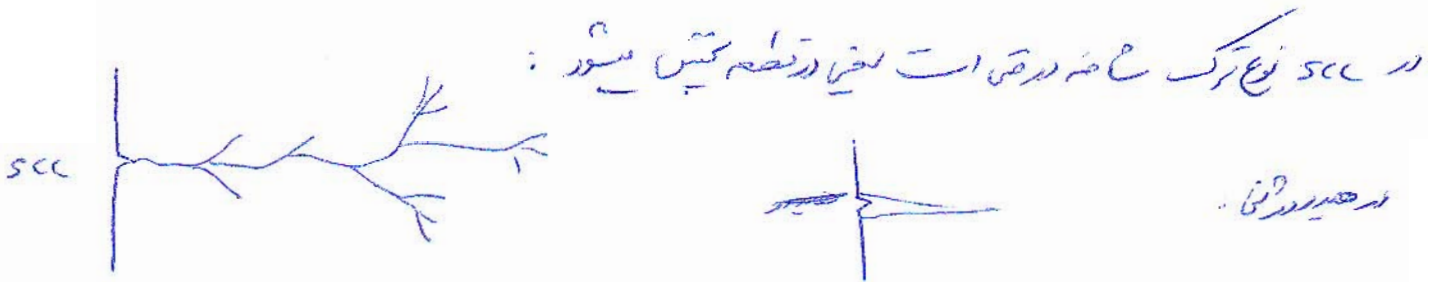 در SCC نوع ترک شاخه درختی است یعنی در قطعه پخش میشود :
SCC
در هیدروژنی .